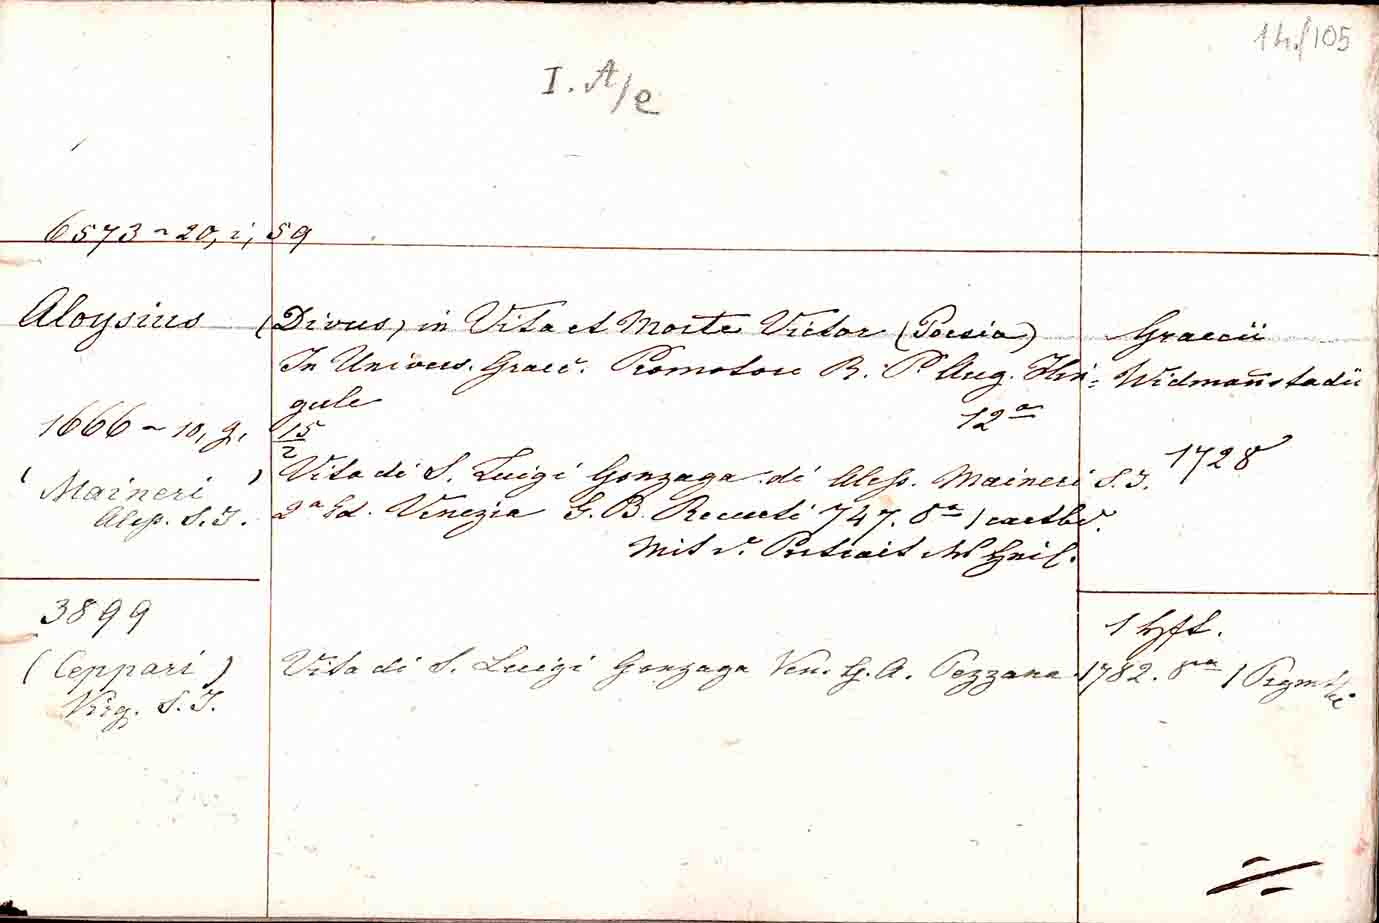 14/105
I. A/e
6573 ~ 20, i, 59
Aloysius (Divus) in Vita et Morte Victor (Poesia) Graecii
In Univers. Graec. Promotore R. P. Aug. Widmañstadii
gule 12a
1666 ~ 10, g, 15/2 1728
(Maineri) Vita di S. Luigi Gonzaga di Aless. Maineri S.J.
Aless. S.J. 2a Ed. Venezia G. B. Recurti 747. 8a
Mit Portrait
3899 1 Hft.
(Ceppari) Vita di S. Luigi Gonzaga Ven. G. A. Pezzana 1782. 8va
Virg. S.J.